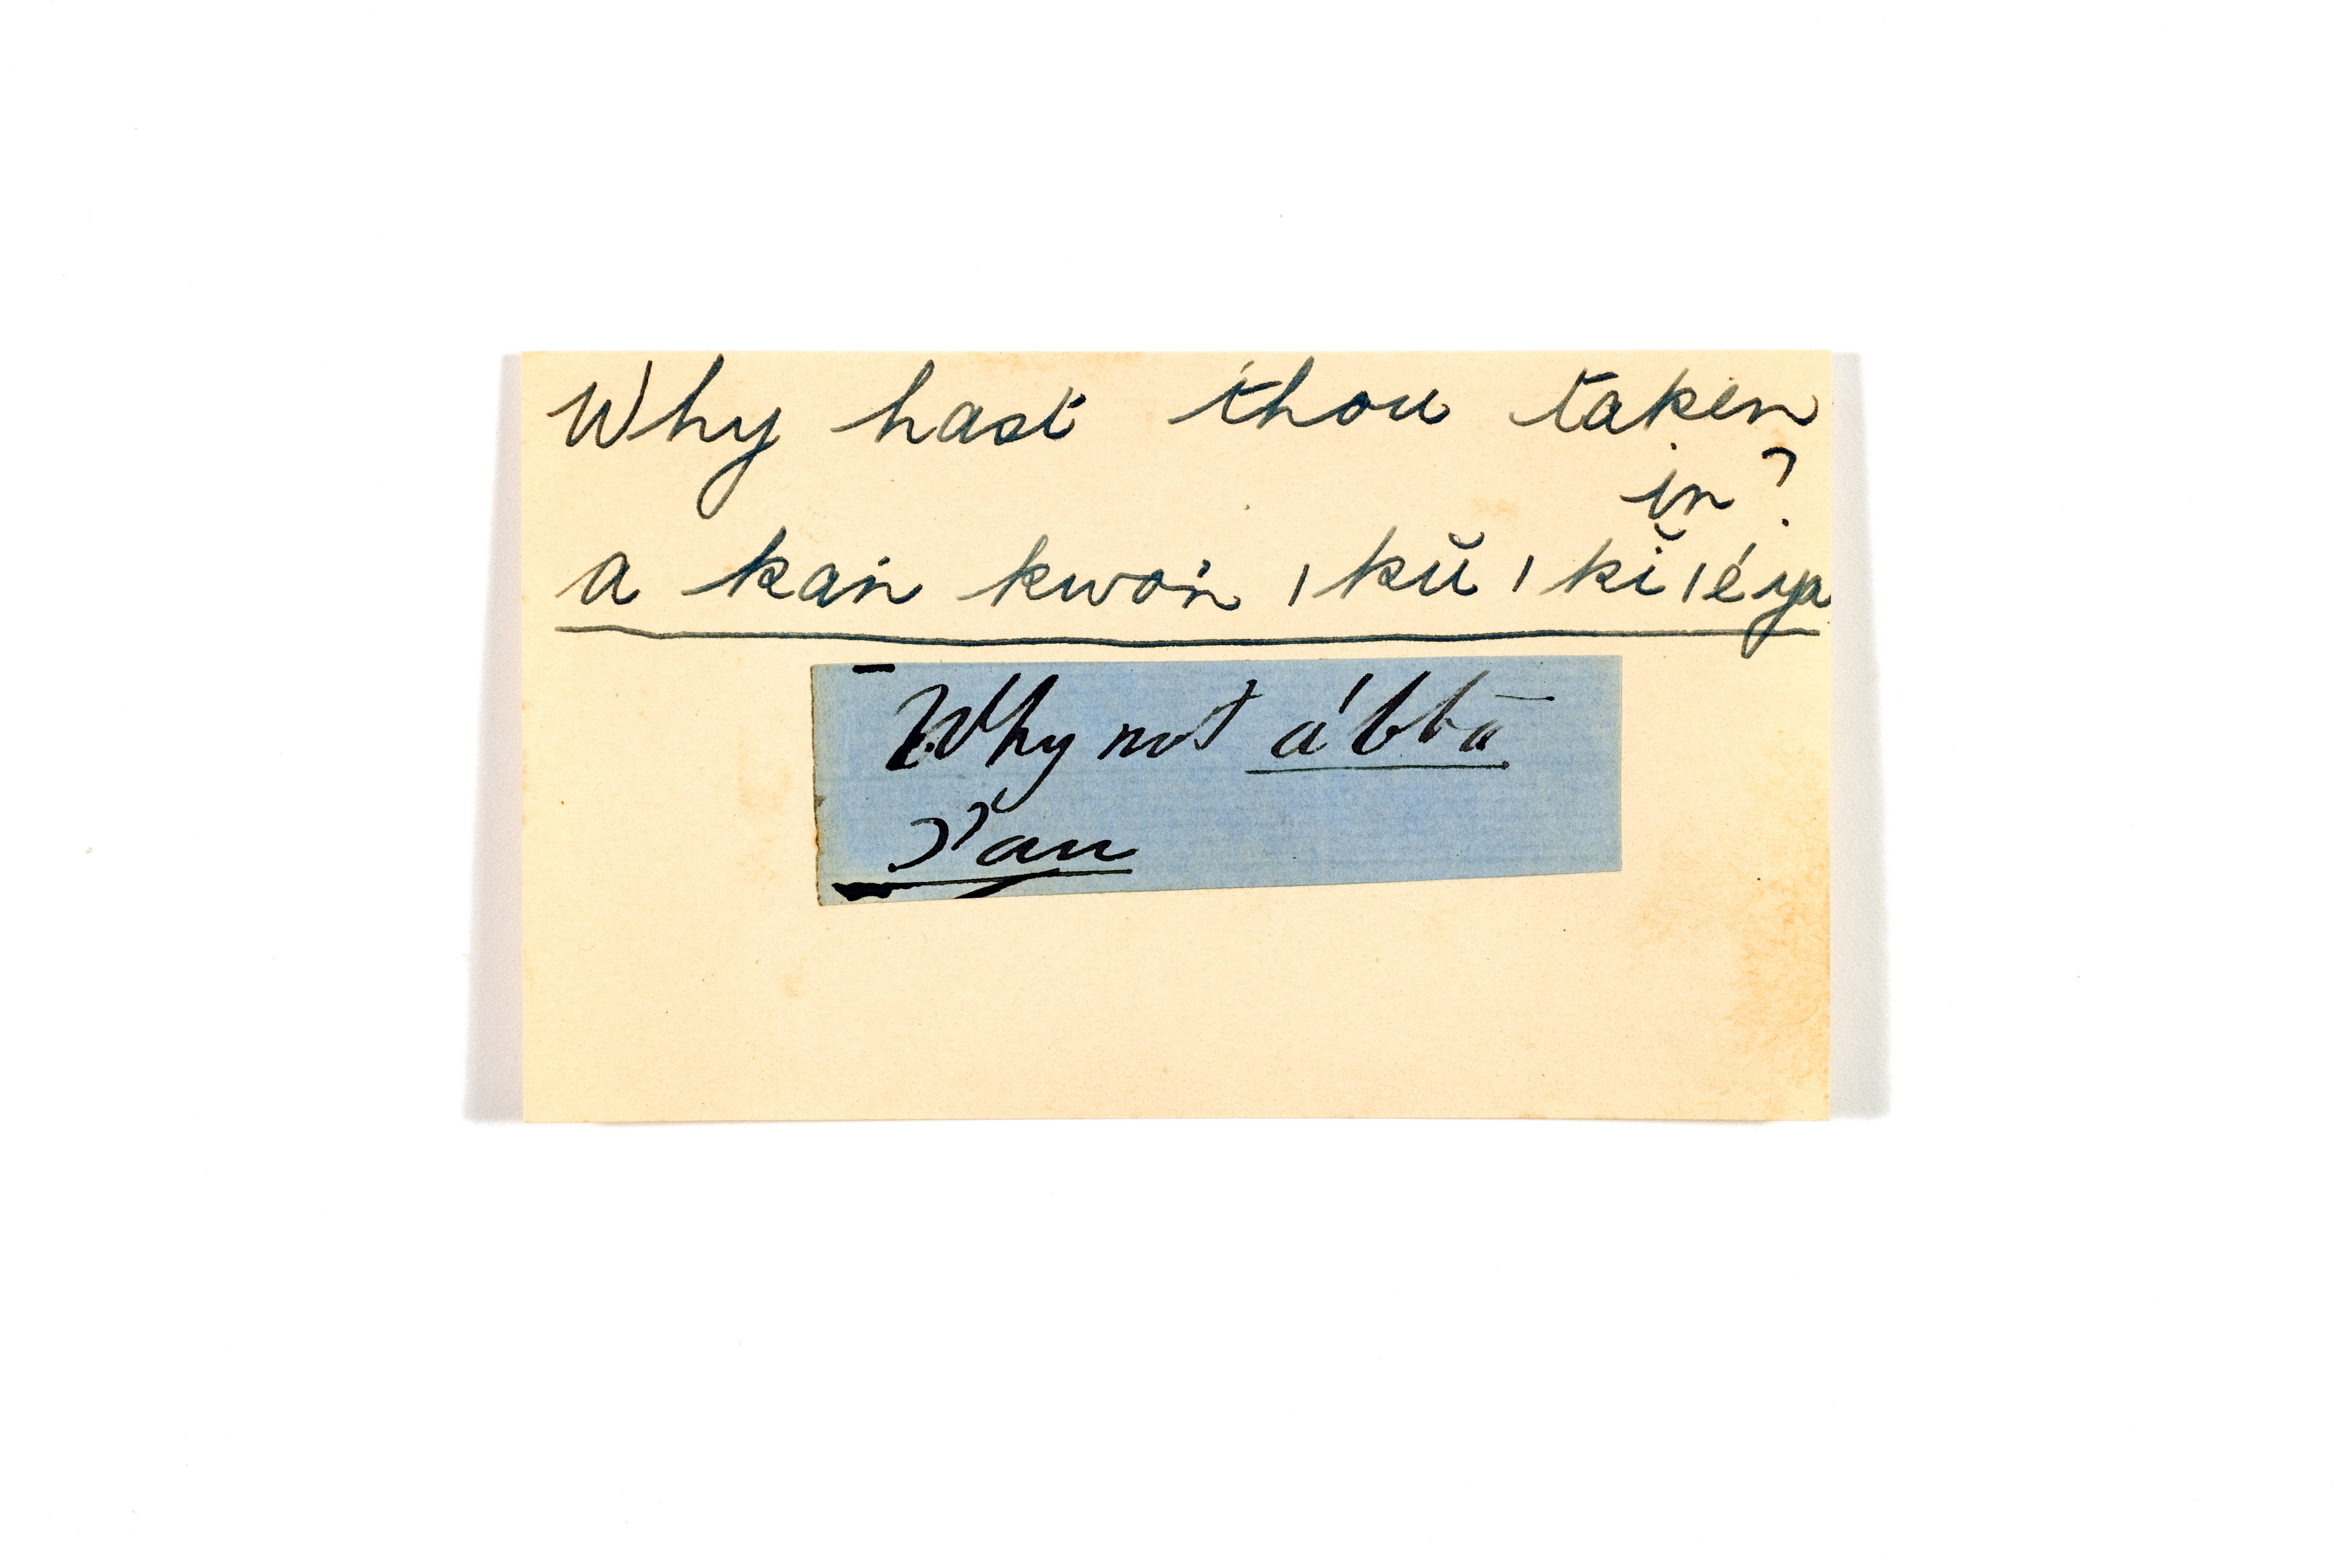 Why hast thou taken
in?
a kaṅ kwoṅ ׀ kŭ ׀ kĭ ׀ éya
Why not a'bbā
?'au